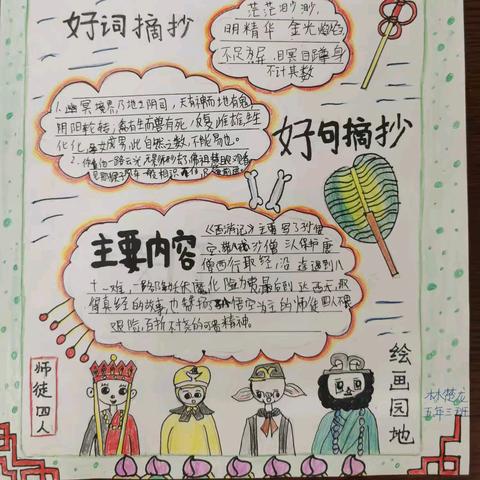 好词摘抄
茫茫渺渺
明精华 金光焰焰
不足为屏 日冥日蹲身
不计其数
1.幽冥境界乃地之阴司，天有神而地有鬼
阴阳轮转；禽有生而兽有死，反复雌雄，生生
化化，孕女成男，此自然之数，不能易也。
好句摘抄
主要内容
《西游记》主要写了孙悟
空、猪八戒、沙僧三人保护唐
僧西行取经，沿途遇到八
十一难，一路降妖伏魔，化险为夷，最后到达西天，取
得真经的故事，也赞扬了孙悟空为主的师徒四人不畏
艰险，百折不挠的可贵精神。
师徒四人
绘画园地
林楚龙
五年三班